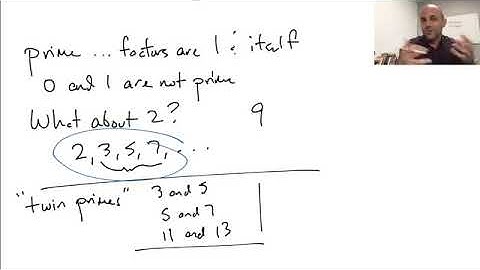 prime ... factors are 1 & itself
0 and 1 are not prime
What about 2? 9
2, 3, 5, 7, ...
"twin primes" 3 and 5
5 and 7
11 and 13